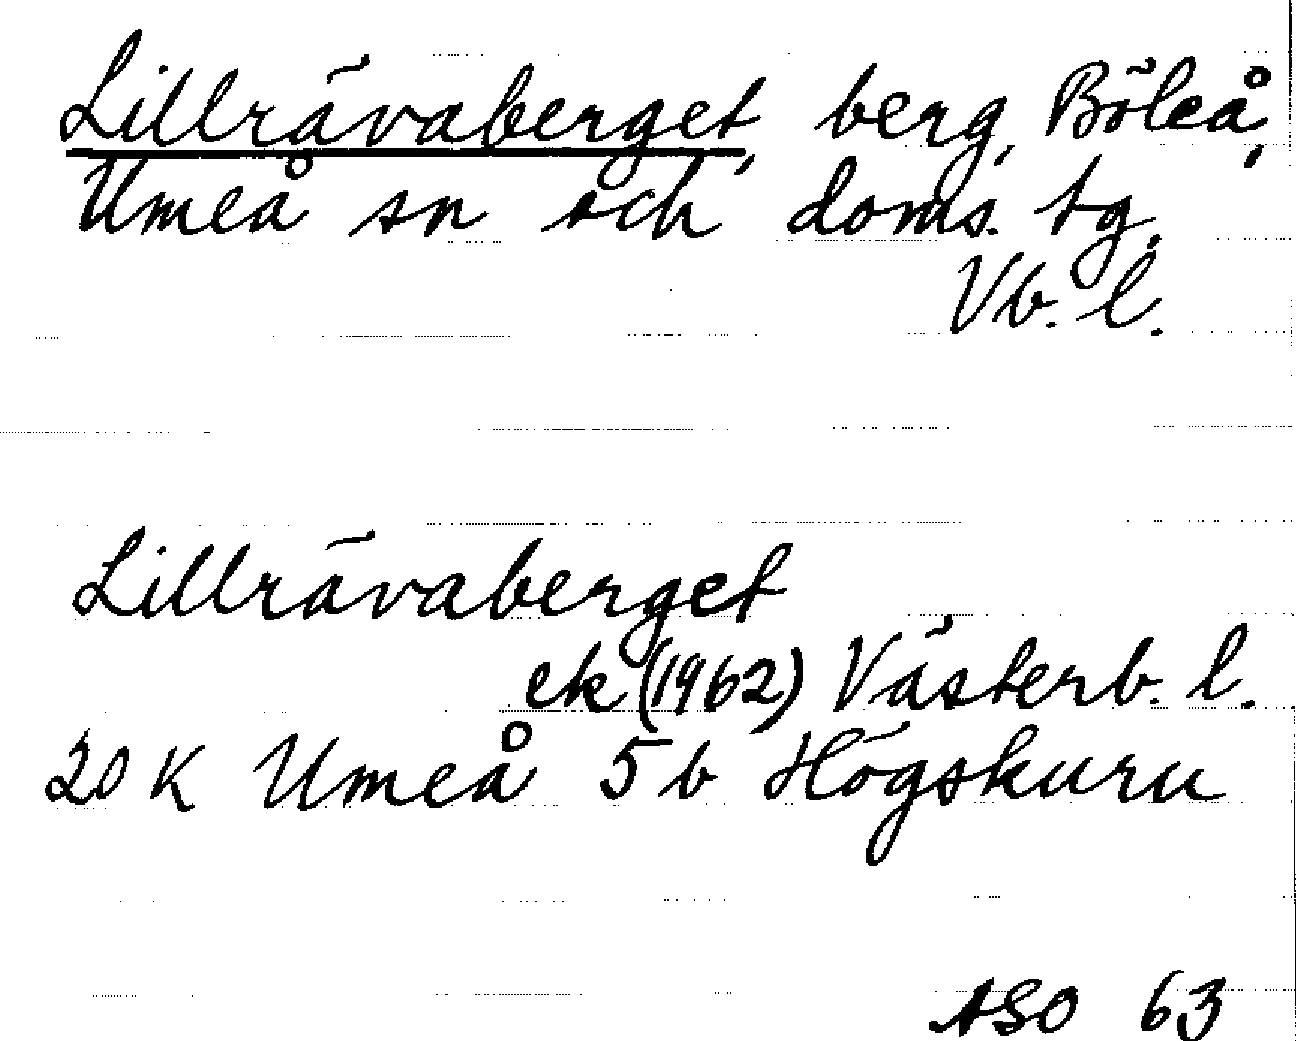 Lillrävaberget, berg, Böleå,
Umeå sn och doms. tg.
Vb. l.
Lillrävaberget
ek (1962) Västerb. l.
20 K Umeå 5b Högskuru
ASO 63